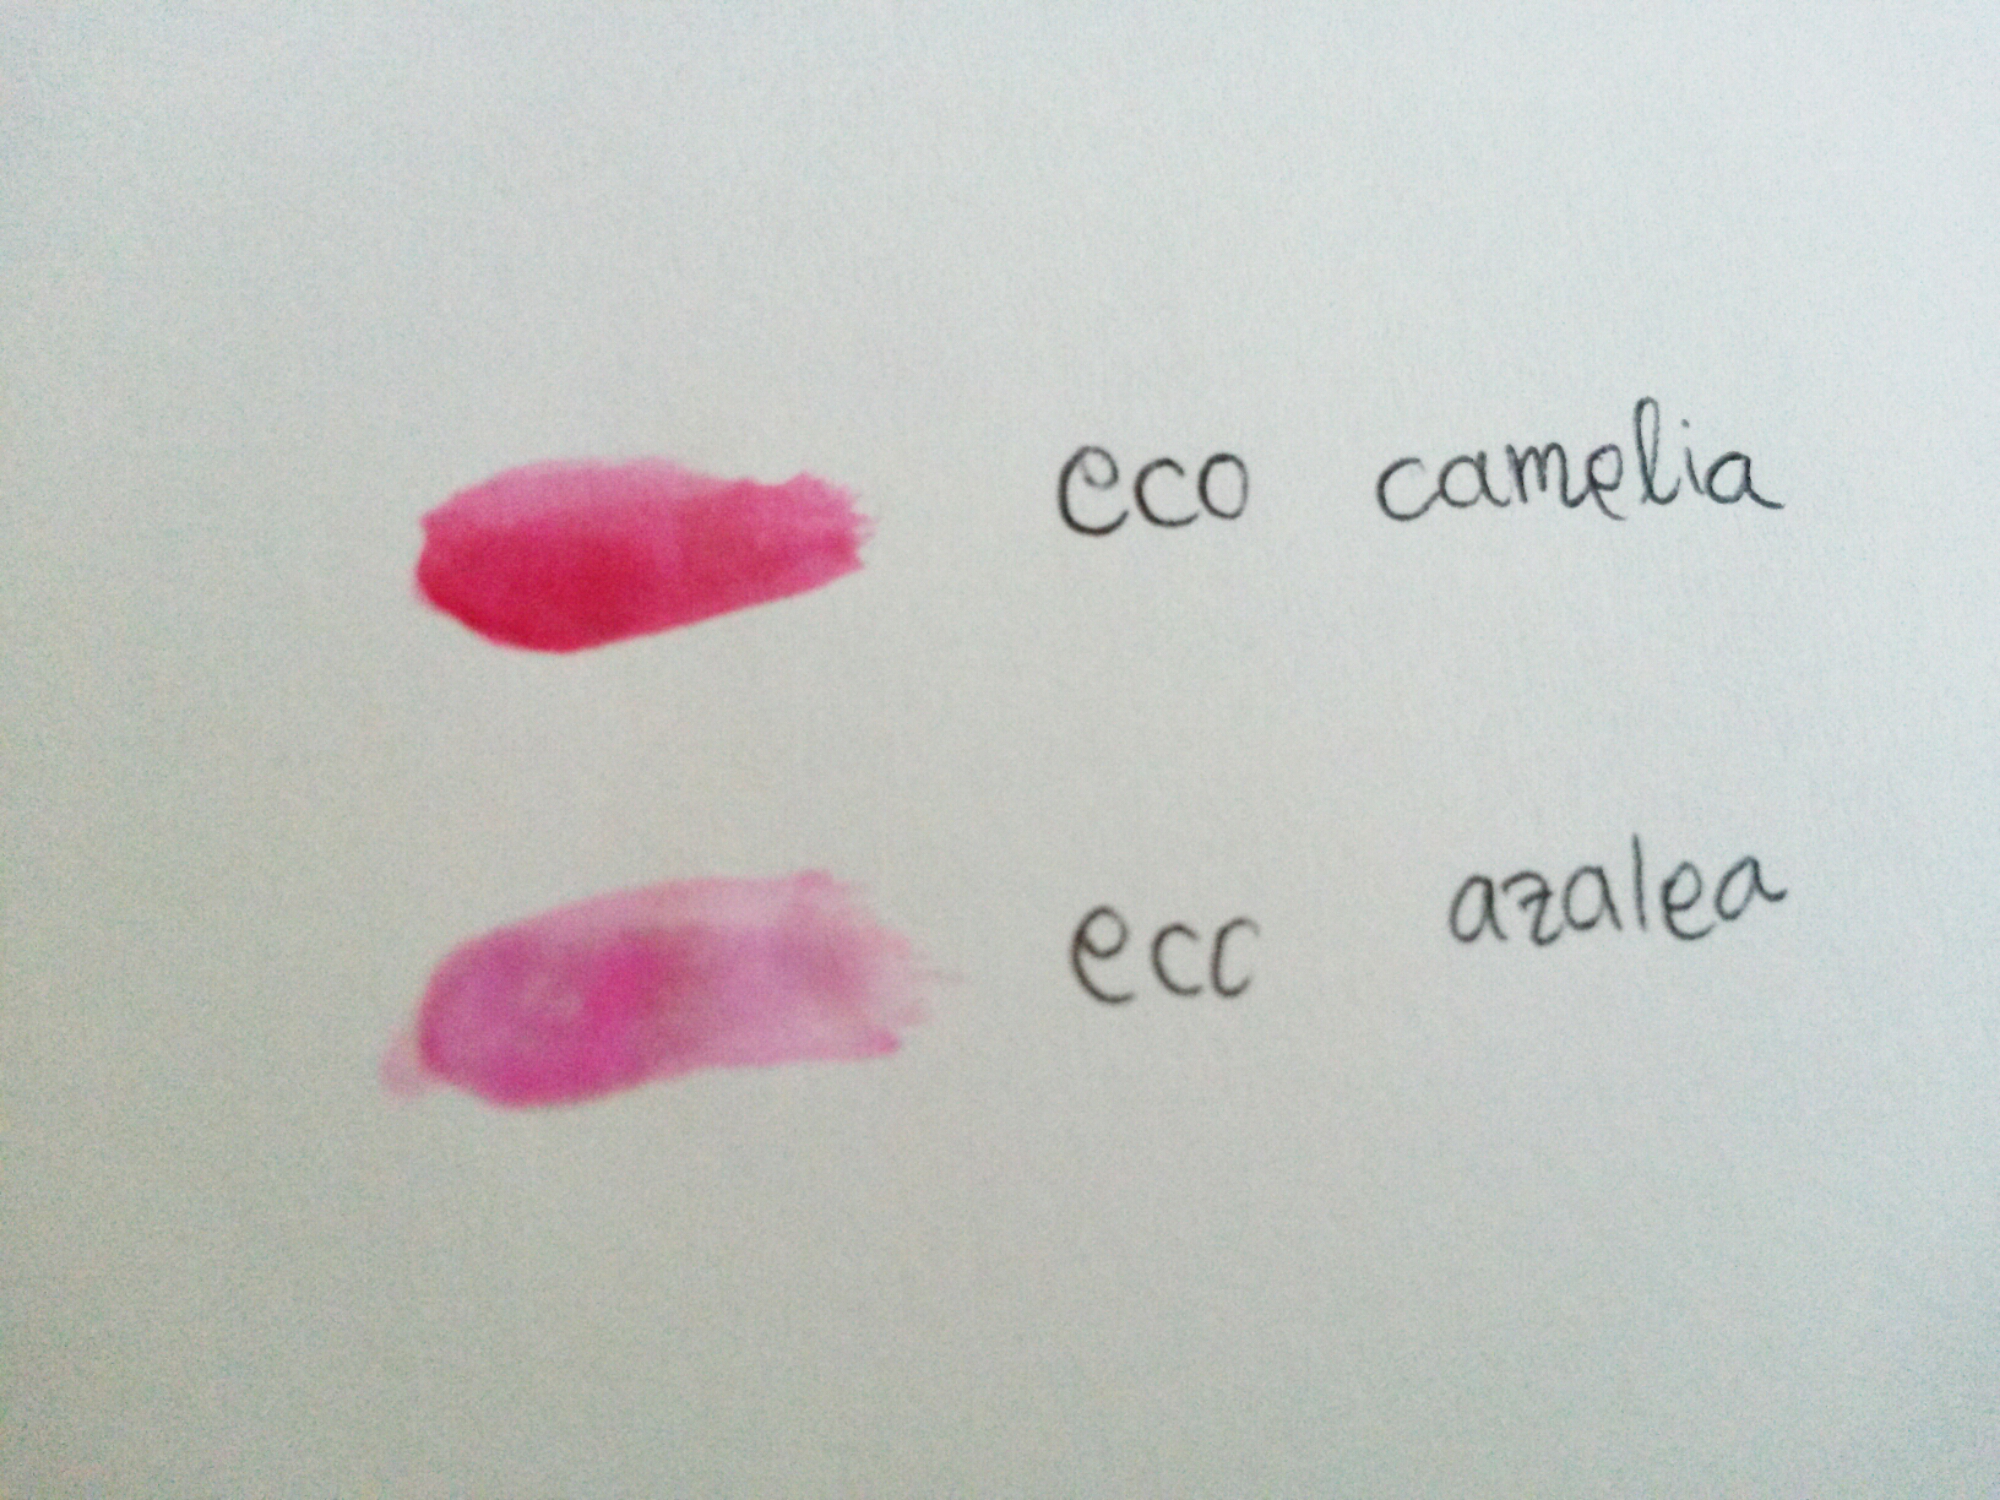 eco camelia
ecc azalea